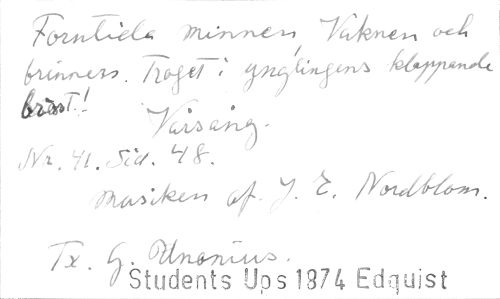 Forntida minnen, Vaknen och
brinnen. Troget i ynglingens klappande
bröst!
Vårsång.
Nr. 41. Sid. 48.
Musiken af J. E. Nordblom.
Tx. G. Unonius.
Students Ups 1874 Edquist